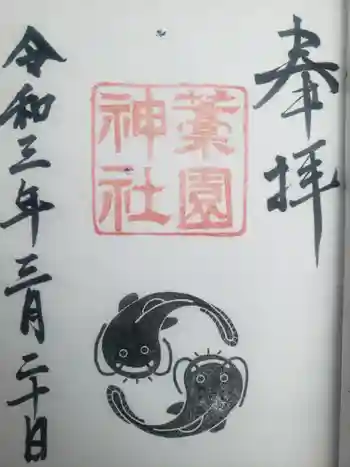 奉拝
藁園
神社
令和三年三月二十日